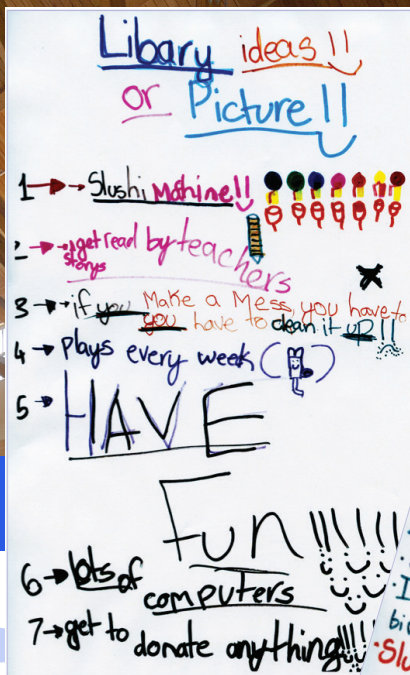 Libary ideas !!
or Picture !!
1 → Slushi Mahine!!
2 → get read by teachers
storys
3 → if you Make a Mess you have to
you have to clean it up!!
4 → plays every week ( )
5 → HAVE
Fun !!!!!!
6 → lots of
computers
7 → get to donate anything!!!!
Slu